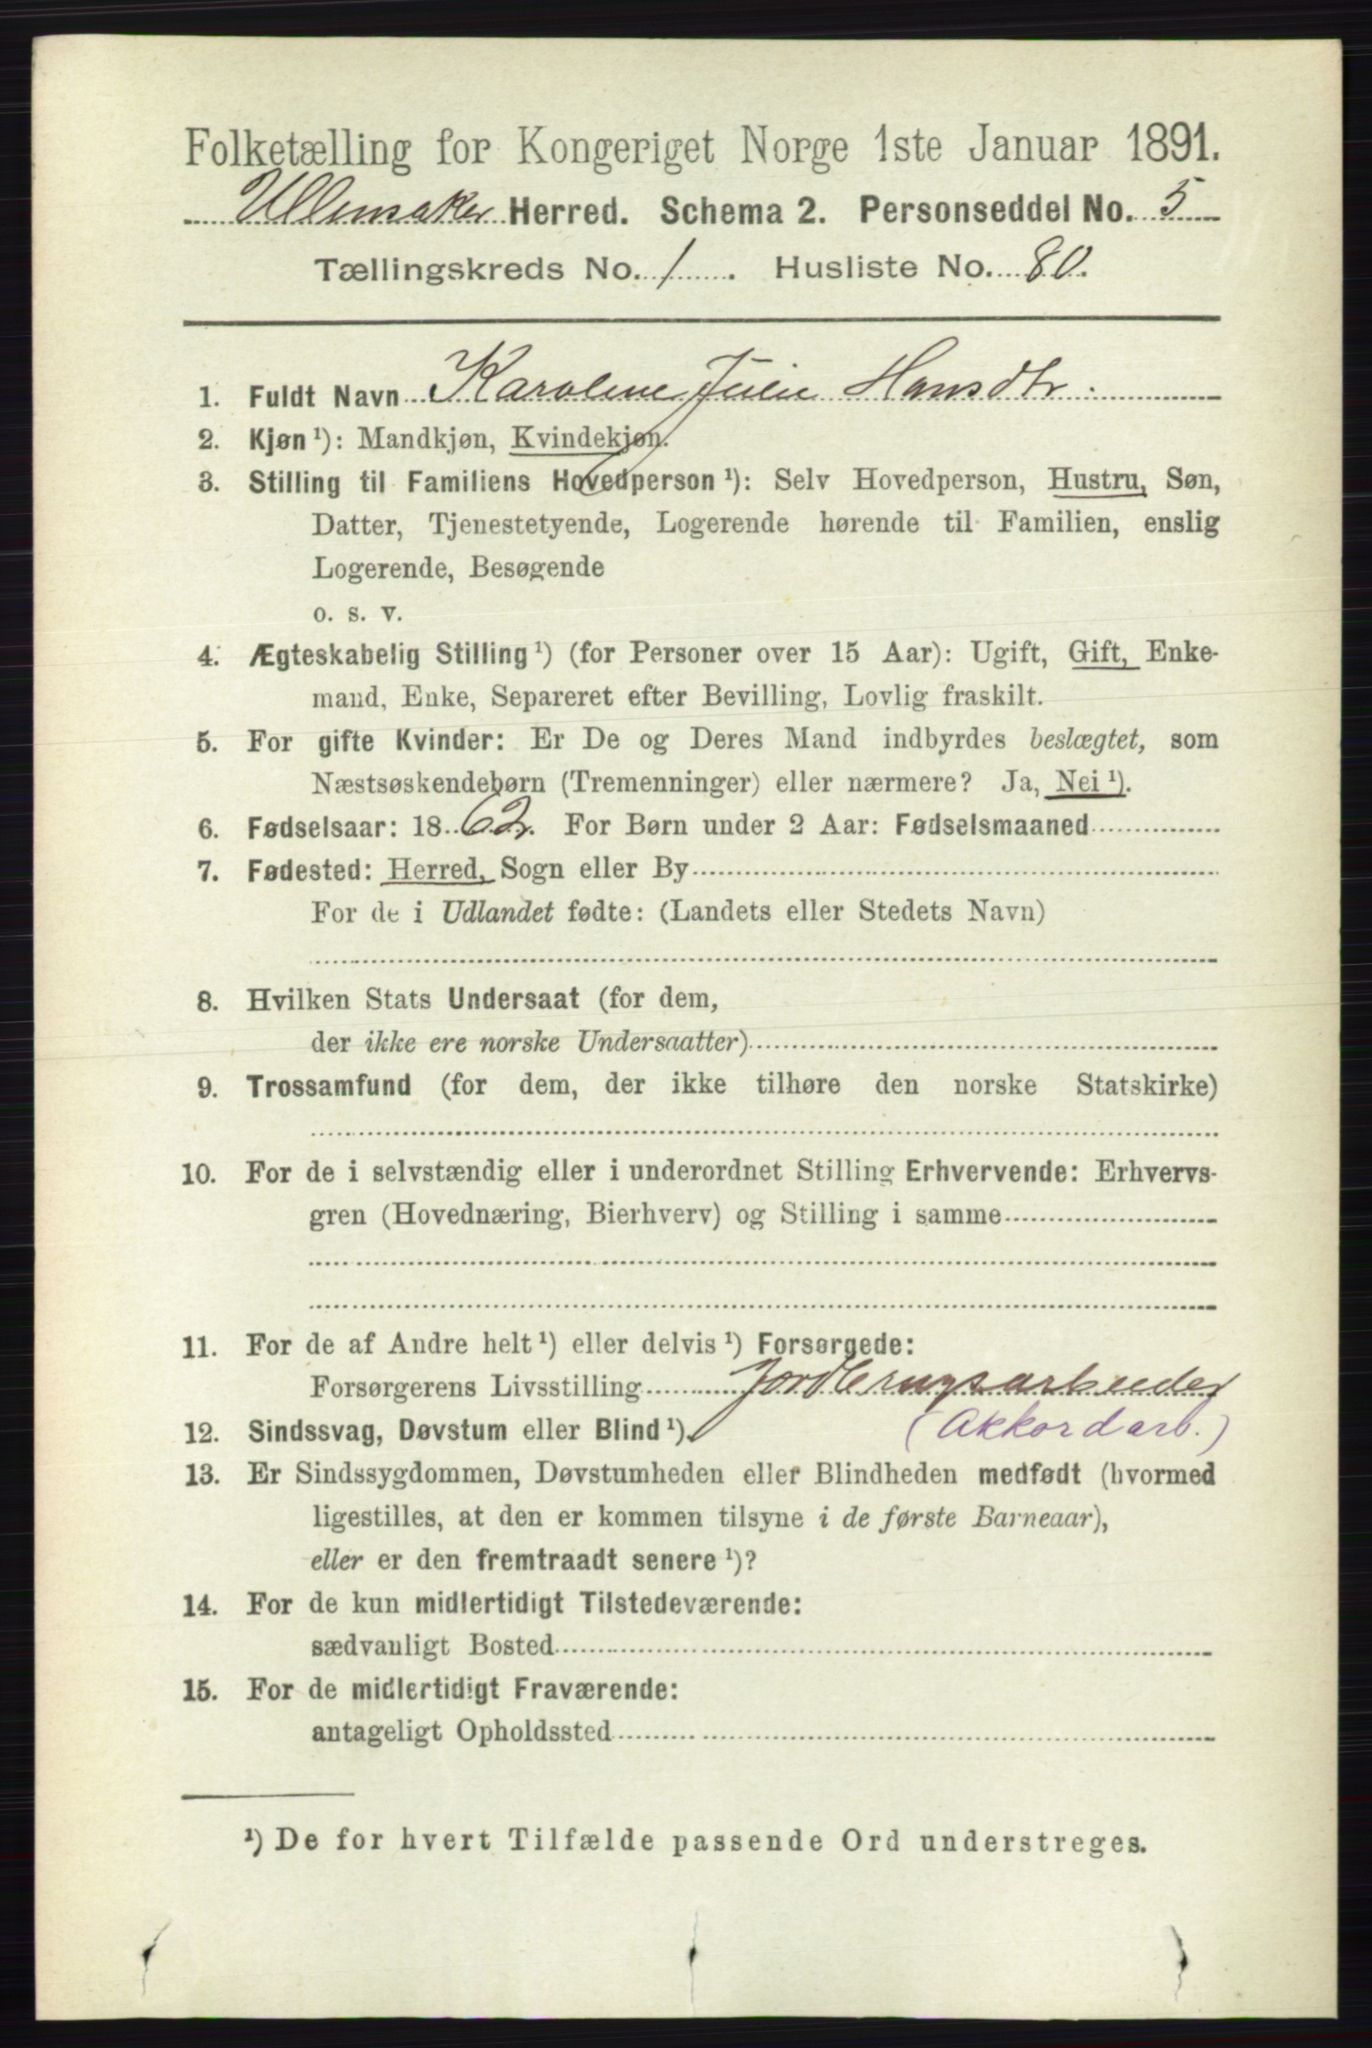 Folketælling for Kongeriget Norge 1ste Januar 1891.
Ullensaker Herred. Schema 2. Personseddel No. 5
Tællingskreds No. 1. Husliste No. 80.
1. Fuldt Navn Karoline Julie Hansdtr.
2. Kjøn ¹): Mandkjøn, Kvindekjøn.
3. Stilling til Familiens Hovedperson ¹): Selv Hovedperson, Hustru, Søn,
Datter, Tjenestetyende, Logerende hørende til Familien, enslig
Logerende, Besøgende
o. s. v.
4. Ægteskabelig Stilling ¹) (for Personer over 15 Aar): Ugift, Gift, Enke-
mand, Enke, Separeret efter Bevilling, Lovlig fraskilt.
5. For gifte Kvinder: Er De og Deres Mand indbyrdes beslægtet, som
Næstsøskendebørn (Tremenninger) eller nærmere? Ja, Nei ¹).
6. Fødselsaar: 1862. For Børn under 2 Aar: Fødselsmaaned
7. Fødested: Herred, Sogn eller By
For de i Udlandet fødte: (Landets eller Stedets Navn)
8. Hvilken Stats Undersaat (for dem,
der ikke ere norske Undersaatter)
9. Trossamfund (for dem, der ikke tilhøre den norske Statskirke)
10. For de i selvstændig eller i underordnet Stilling Erhvervende: Erhvervs-
gren (Hovednæring, Bierhverv) og Stilling i samme
11. For de af Andre helt ¹) eller delvis ¹) Forsørgede:
Forsørgerens Livsstilling Jordbrugsarbeider
12. Sindssvag, Døvstum eller Blind ¹). (Akkordarb.)
13. Er Sindssygdommen, Døvstumheden eller Blindheden medfødt (hvormed
ligestilles, at den er kommen tilsyne i de første Barneaar),
eller er den fremtraadt senere ¹)?
14. For de kun midlertidigt Tilstedeværende:
sædvanligt Bosted
15. For de midlertidigt Fraværende:
antageligt Opholdssted
¹) De for hvert Tilfælde passende Ord understreges.